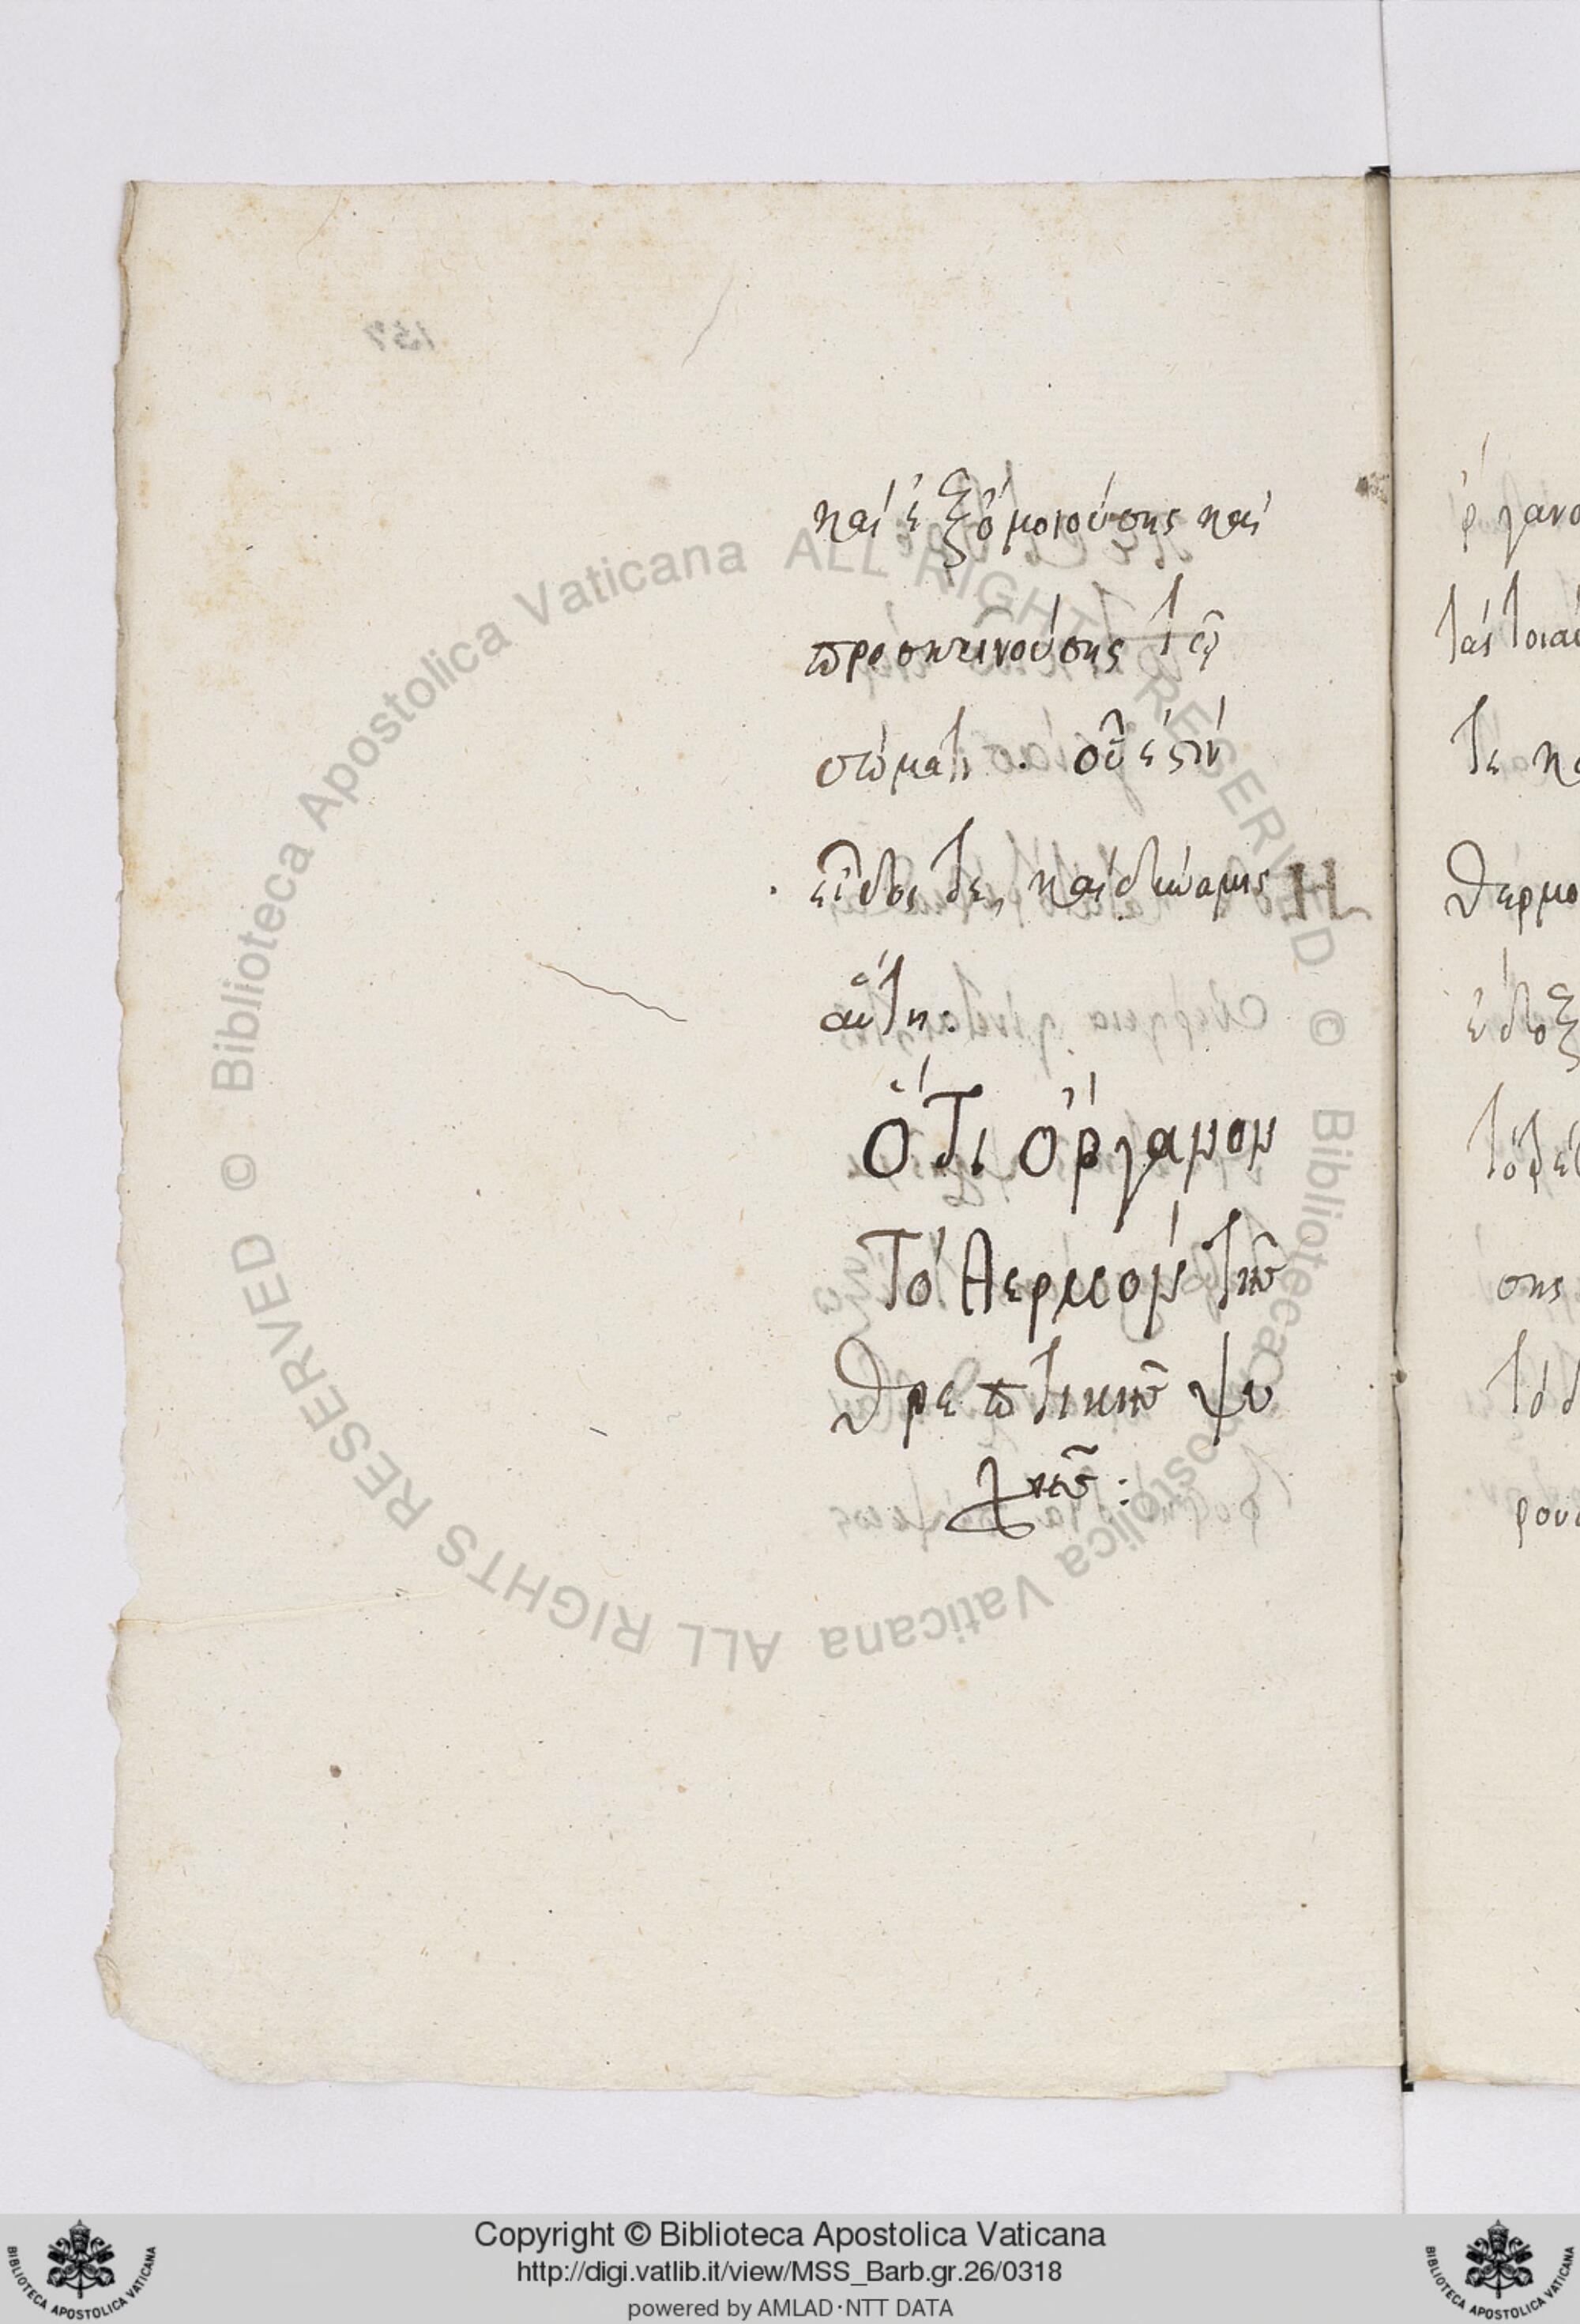 καὶ ἐξομοιούσης καὶ
προσκρινούσης τῷ
σώματι. οὗ ἐστὶν
εἶδός τε, καὶ δύναμις
αὕτη:
Ὅτι ὄργανον
τὸ θερμὸν τῆς
θρεπτικῆς ψυ
χῆς:
Copyright © Biblioteca Apostolica Vaticana
http://digi.vatlib.it/view/MSS_Barb.gr.26/0318
powered by AMLAD·NTT DATA
BIBLIOTECA APOSTOLICA VATICANA
BIBLIOTECA APOSTOLICA VATICANA
© Biblioteca Apostolica Vaticana ALL RIGHTS RESERVED
© Biblioteca Apostolica Vaticana ALL RIGHTS RESERVED